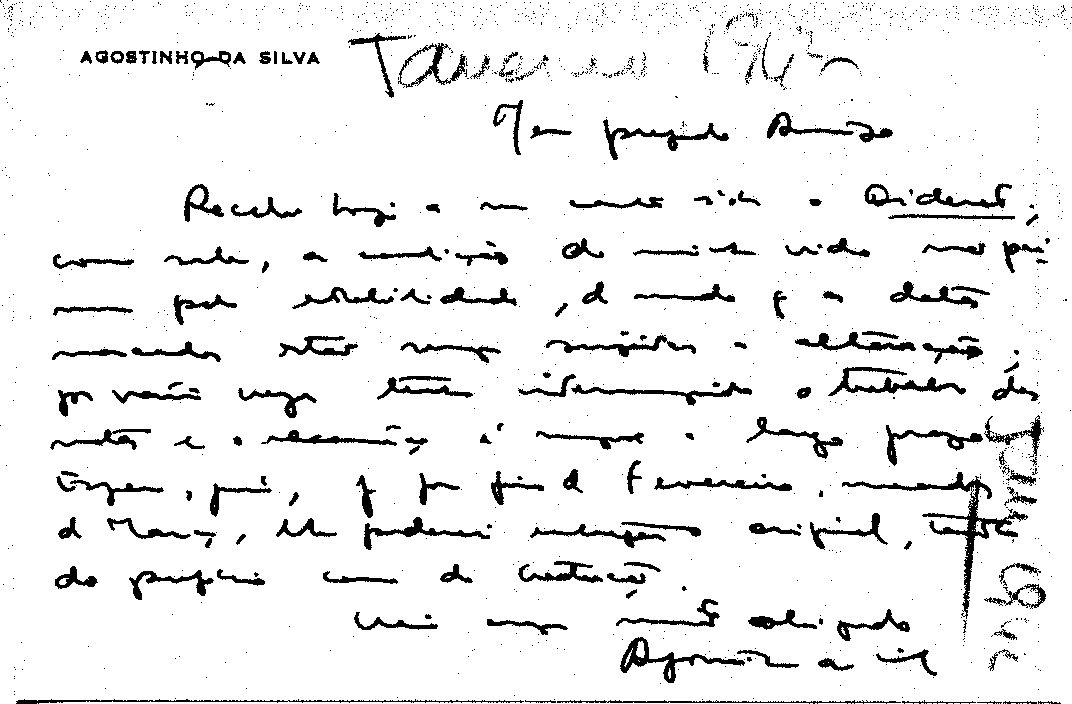 AGOSTINHO DA SILVA Janeiro 1942
Meu prezado Amigo
Recebo hoje a sua carta o Diderot;
como sabe, a condição de minha vida não pri-
ma pela estabilidade, de modo q as datas
marcadas estão sempre sujeitas a alteração;
por várias vezes tenho interrompido o trabalho das
notas e o é sempre a largo prazo
Espero, pois, q por fins de Fevereiro, meados
de Março, lhe poderei entregar o original, tanto
do prefácio como da tradução.
amigo muito obrigado
Agostinho da Silva